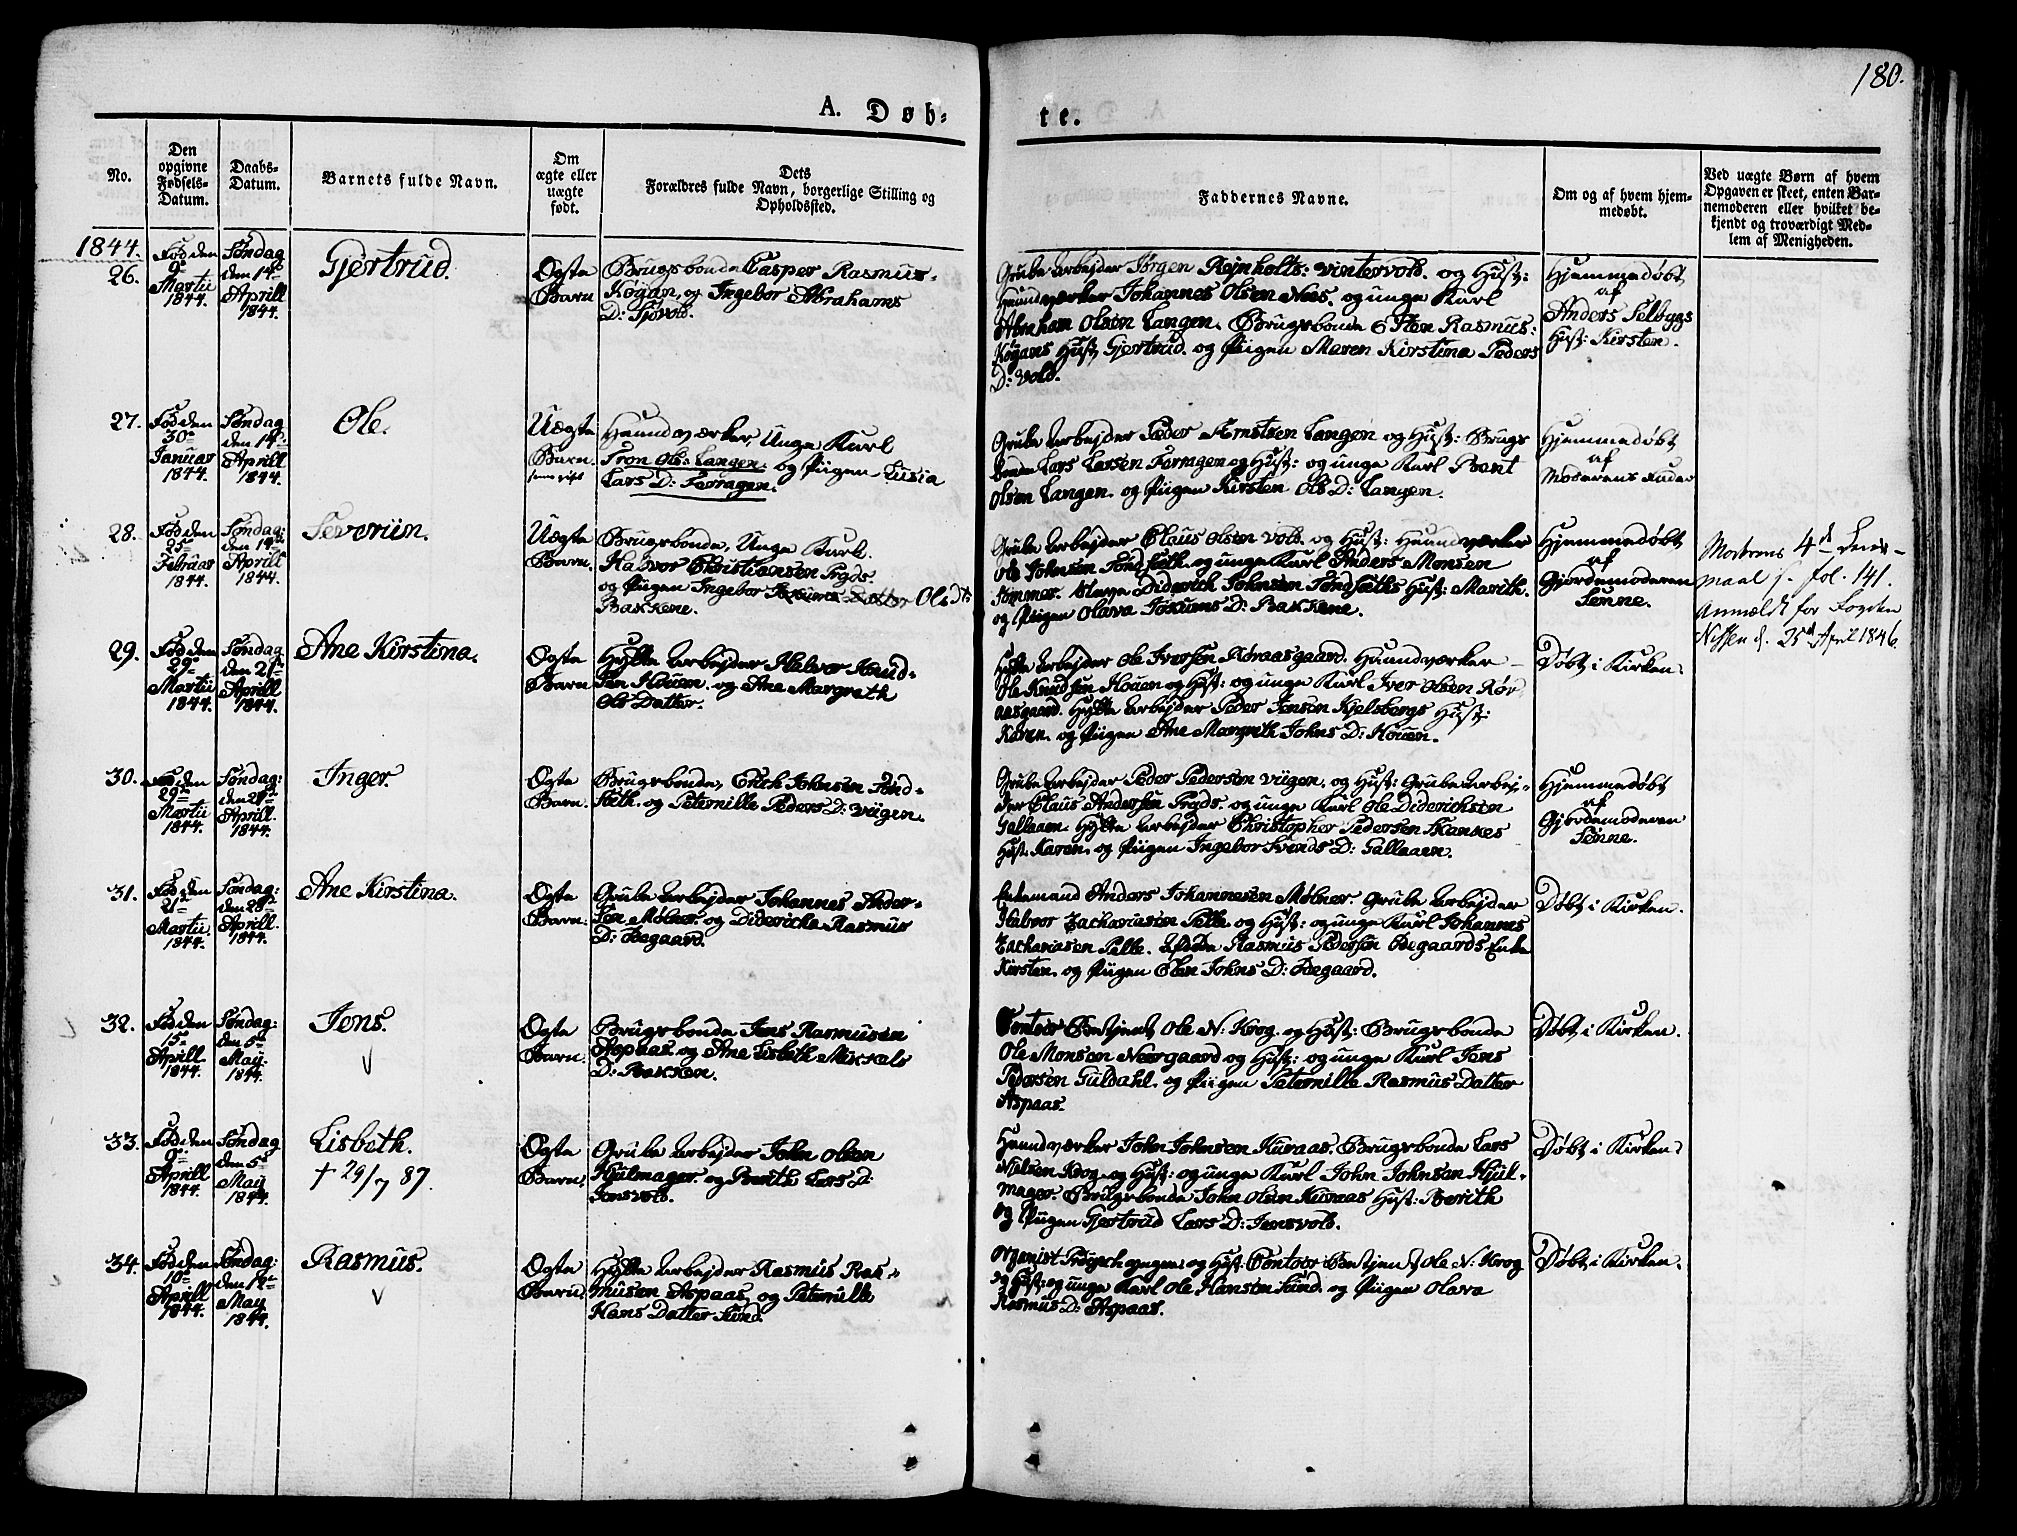 180.
A. Døb-
te.
No.
Den opgivne Fødsels-Datum.
Daabs-Datum.
Barnets fulde Navn.
Om ægte eller uægte født.
Dets Forældres fulde Navn, borgerlige Stilling og Opholdssted.
Faddernes Navne.
Om og af hvem hjem-medøbt.
Ved uægte Børn af hvem
Opgaven er skeet, enten Bar-
nemoderen eller hvilket be-
kjendt og troværdigt Med-
lem af Menigheden.
1844.
26.
Fød den
9de
Martii
1844.
Søndag
den 14de
Aprill
1844.
Gjertrud.
Øgte
Barn
Brugsbonde Casper Rasmus-
Køgan, og Ingebor Abrahams
D: Sjøvold.
Grube Arbejder Jørgen Rejnholts: Vintervold. og Hust:
Haundværker Johannes Olsen Nees. og unge Karl
Abraham Olsen Langen. Brugsbonde Sten Rasmus:
Køgans Hust, Gjertrud. og Piigen Maren Kirstina Peders
D: Vold.
Hjemmedøbt
af
Anders Selbygs
Hust: Kirsten.
27.
Fød den
30te
Januar
1844.
Søndag
den 14de
Aprill
1844.
Ole.
Uægte
Barn.
Haundværker, Unge Karl
Tron Ols: Langen. og Piigen Lusia
Lars D: Ferragen.
Grube Arbejder Peder Arntsen Langen og Hust: Brugs
bonde Lars Larsen Ferragen og Hust: og unge Karl Bent
Olsen Langen. og Piigen Kirsten Ols D: Langen.
Hjemmedøbt
af
Moderens Fader
28.
Fød den
25de
Februar
1844.
Søndag:
den 14de
Aprill
1844.
Severiin.
Uægte
Barn.
Brugsbonde, Unge Karl.
Halvor Christiansen Tryds.
og Piigen Ingebor Jokums Datter Ols Dt
Bakkene.
Grube Arbejder Claus Olsen Vold. og Hust: Haundværker
Ole Johnsen Tøndfelth. og unge Karl Anders Monsen
Sommer. Diderich Johnsen Tøndfelths Hust: Marith.
og Piigen Olava Jokums D: Bakkene.
Hjemmedøbt
af
Gjordemoderen
Sønne.
Moderens 4de Leier-
maal s. fol. 141.
Anmeldt for Fogden
Nissen d. 25d April 1846.
29.
Fød den
29de
Martii
1844.
Søndag
den 21de
Aprill
1844.
Ane Kirstina.
Øgte
Barn
Hytte Arbejder Halvor Knud-
sen Houen. og Ane Margreth
Ols Datter.
Hytte Arbejder Ole Iversen Røraasgaard. Haundværker
Ole Knudsen Houen og Hust: og unge Karl Iver Olsen Rør
aasgaard. Hytte Arbejder Peder Jensen Kjelsbergs Hust:
Karen. og Piigen Ane Margreth Johns D: Houen.
Døbt i Kirken.
30.
Fød den
29de
Martii
1844.
Søndag:
den 21de
Aprill.
1844.
Inger.
Øgte
Barn.
Brugsbonde, Erich Johnsen Tønd-
felth. og Peternille Peders D: Viigen.
Grube Arbejder Peder Pedersen Viigen. og Hust: Grube Arbej-
der Claus Andersen Tryds. og unge Karl Ole Diderichsen
Gallaaen. Hytte Arbejder Christopher Pedersen Skankes
Hust. Karen. og Piigen Ingebor Svends D: Gallaaen.
Hjemmedøbt
af
Gjordemoderen
Sønne.
31.
Fød den
21de
Martii
1844.
Søndag:
den 28de
Aprill.
1844.
Ane Kirstina.
Øgte
Barn.
Grube Arbejder Johannes Ander-
sen Møbner. og Didericka Rasmus
D: Øegaard.
Enkemand Anders Johannesen Møbner. Grube Arbejder
Halvor Zachariasen Pelle. og Hust: og unge Karl Johannes
Zachariasen Pelle. Afdøde Rasmus Pedersen Øegaards Enke
Kirsten. og Piigen Elen Johns D: Øegaard.
Døbt i Kirken.
32.
Fød den
15de
Aprill
1844.
Søndag:
den 5te
May:
1844.
Jens.
V
Øgte
Barn.
Brugsbonde Jens Rasmusen
Aspaas. og Ane Lisbeth Mikkels
D: Bakken.
Contoir Betjent Ole N: Krog. og Hust: Brugsbonde
Ole Monsen Neergaard og Hust: og unge Karl Jens
Pedersen Guldahl. og Piigen Peternille Rasmus Datter
Aspaas.
Døbt i Kirken.
33.
Fød den
9de
Aprill
1844.
Søndag
den 5te
May
1844.
Lisbeth.
† 29/7 87.
Øgte
Barn.
Grube Arbejder John Olsen
Hjulmager. og Berith Lars D:
Jensvold.
Haundværker John Johnsen Kuraas. Brugsbonde Lars
Nielsen Krog. og Hust: og unge Karl John Johnsen Hjul-
mager. Brugsbonde John Olsen Kuraas Hust: Berith
og Piigen Gjertrud Lars D: Jensvold.
Døbt i Kirken.
34.
Fød den
10de
Aprill
1844.
Søndag:
den 12te
May
1844.
Rasmus.
V
Øgte
Barn
Hytte Arbejder Rasmus Ras-
musen Aspaas, og Peternille
Hans Datter Sund.
Organist og Hust. Contoir Betjent Ole N. Krog
og Hust: og unge Karl Ole Hansen Sund. og Piigen Olava
Rasmus D: Aspaas.
Døbt i Kirken.